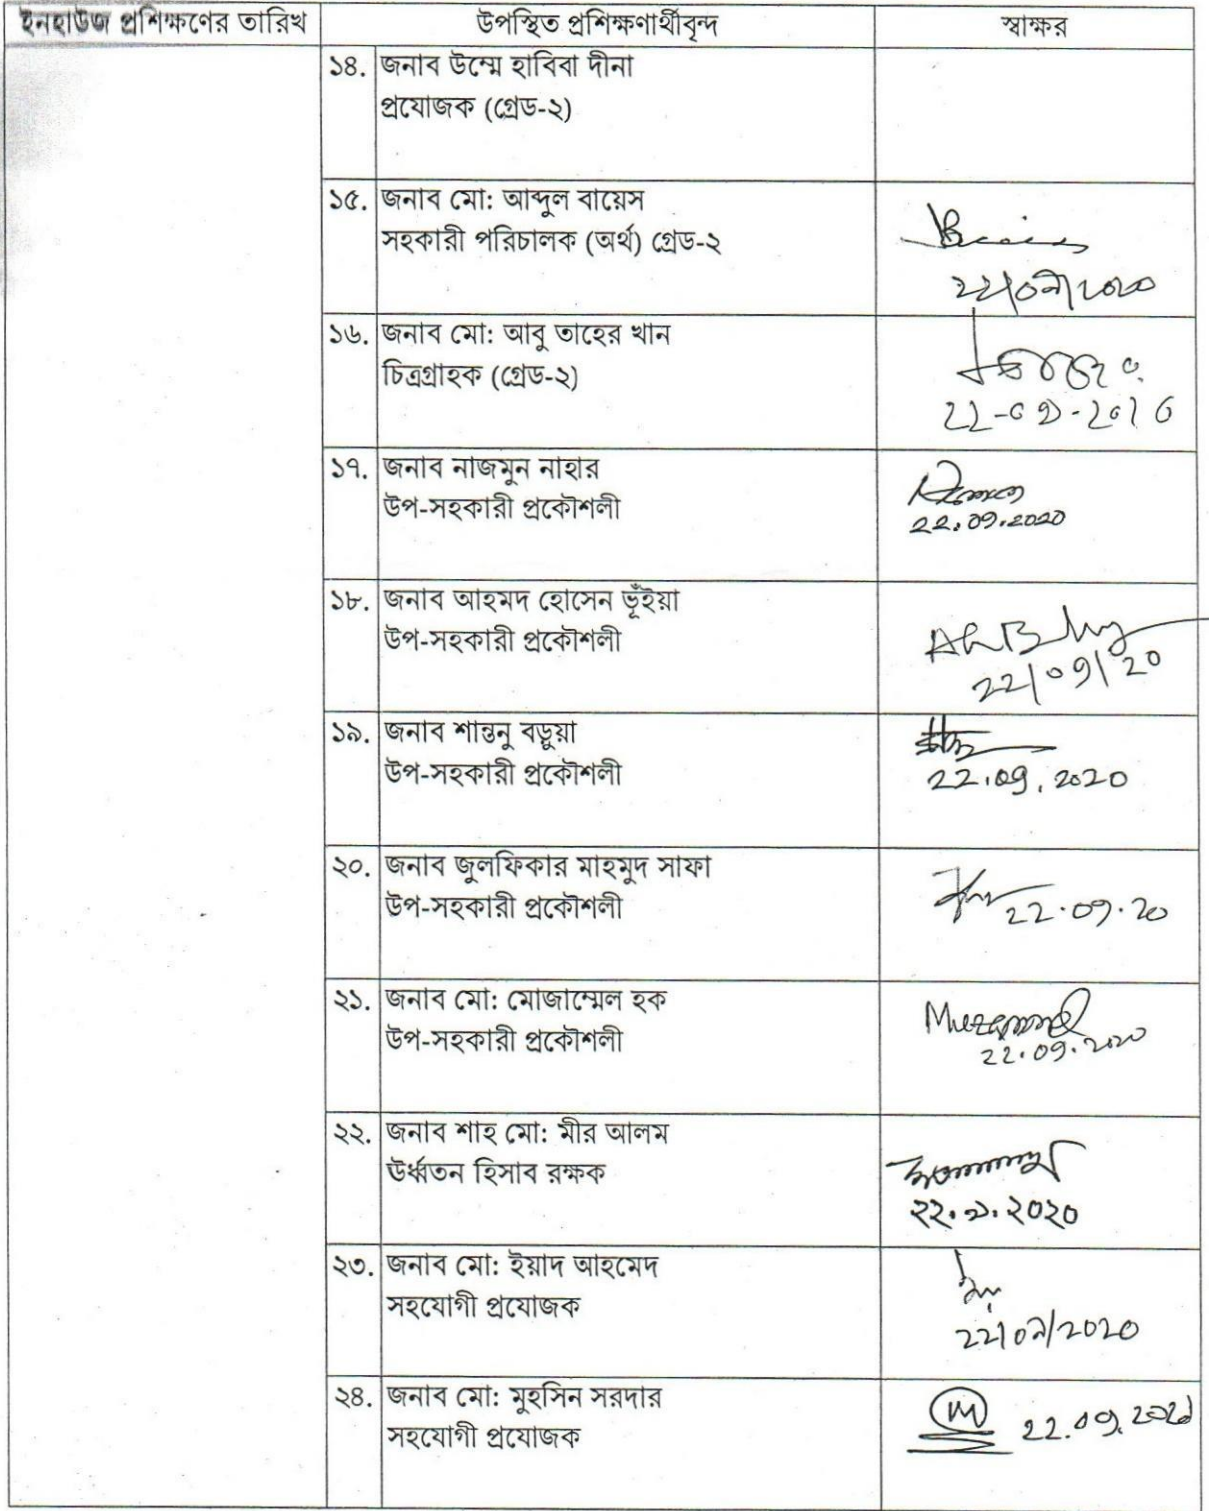 ইনহাউজ প্রশিক্ষণের তারিখ
উপস্থিত প্রশিক্ষণার্থীবৃন্দ
স্বাক্ষর
১৪. জনাব উম্মে হাবিবা দীনা
প্রযোজক (গ্রেড-২)
১৫. জনাব মো: আব্দুল বায়েস
সহকারী পরিচালক (অর্থ) গ্রেড-২
২২/০৯/২০২০
১৬. জনাব মো: আবু তাহের খান
চিত্রগ্রাহক (গ্রেড-২)
১৭. জনাব নাজমুন নাহার
উপ-সহকারী প্রকৌশলী
22.09.2020
১৮. জনাব আহমদ হোসেন ভূঁইয়া
উপ-সহকারী প্রকৌশলী
22/09/20
১৯. জনাব শান্তনু বড়ুয়া
উপ-সহকারী প্রকৌশলী
22.09.2020
২০. জনাব জুলফিকার মাহমুদ সাফা
উপ-সহকারী প্রকৌশলী
22.09.20
২১. জনাব মো: মোজাম্মেল হক
উপ-সহকারী প্রকৌশলী
22.09.2020
২২. জনাব শাহ মো: মীর আলম
ঊর্ধ্বতন হিসাব রক্ষক
২২.৯.২০২০
২৩. জনাব মো: ইয়াদ আহমেদ
সহযোগী প্রযোজক
২২/০৯/২০২০
২৪. জনাব মো: মুহসিন সরদার
সহযোগী প্রযোজক
22.09.2020